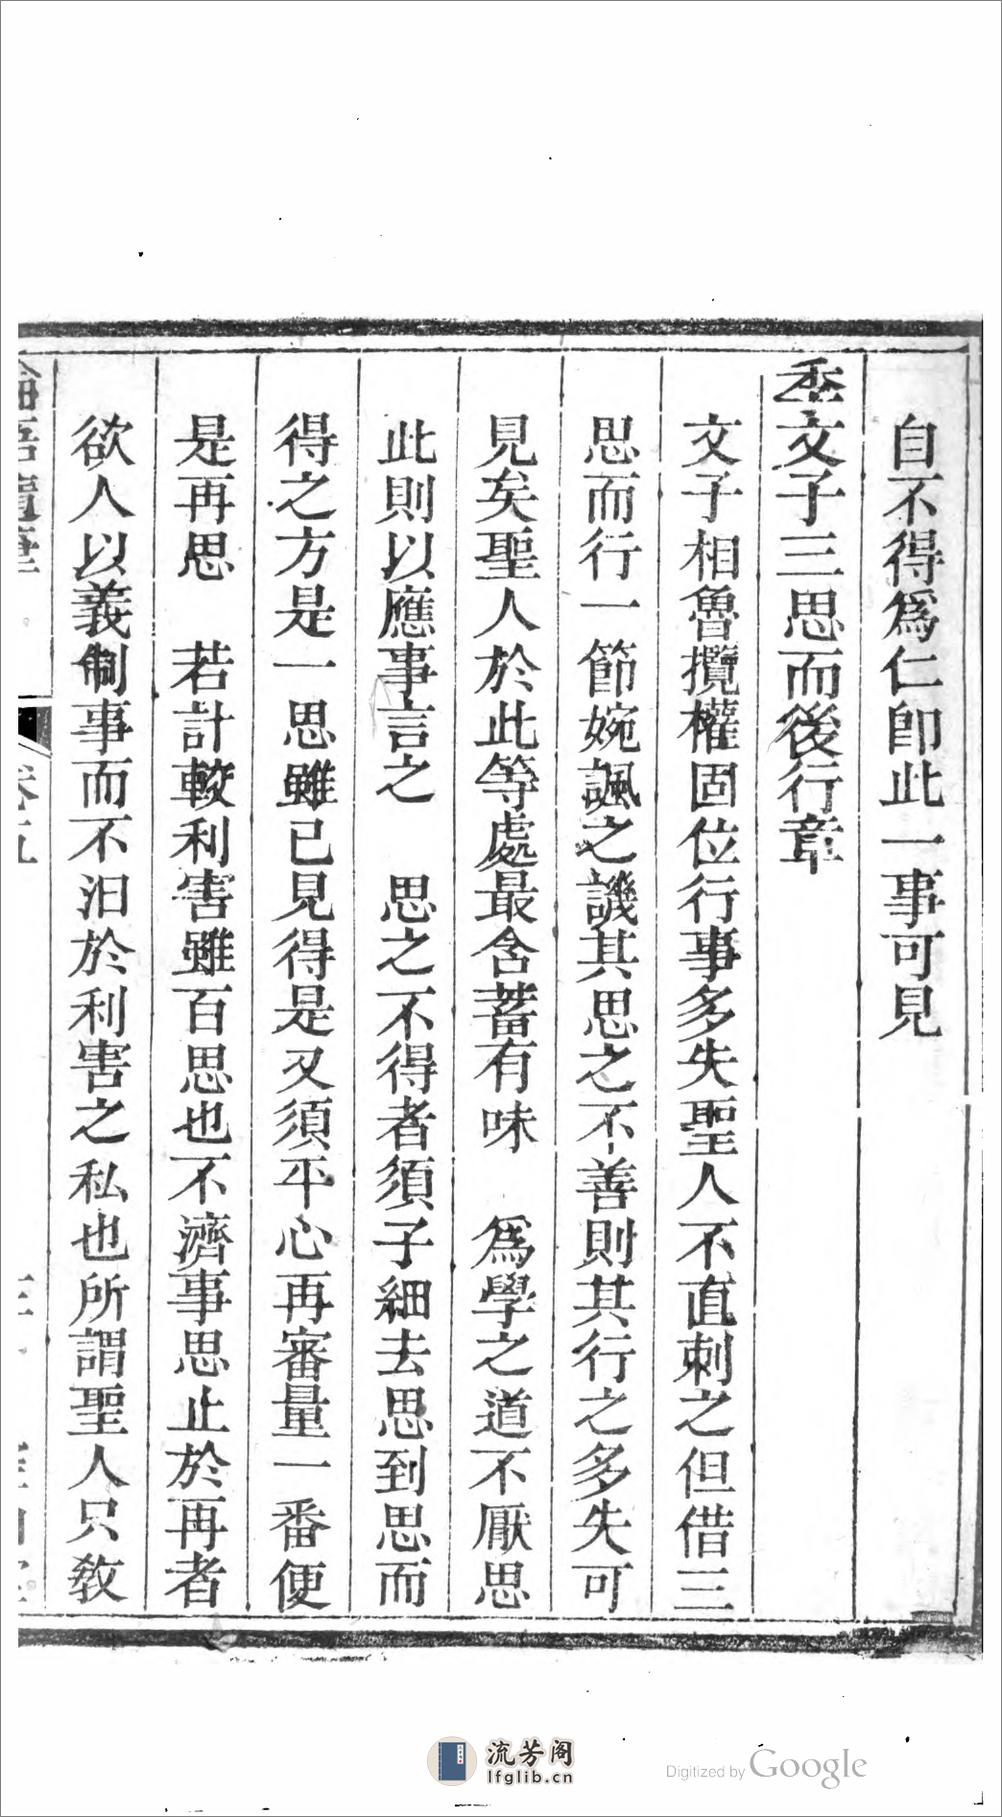 自不得爲仁卽此一事可見
季文子三思而後行章
文子相魯攬權固位行事多失聖人不直刺之但借三
思而行一節婉諷之譏其思之不善則其行之多失可
見矣聖人於此等處最含蓄有味　爲學之道不厭思
此則以應事言之　思之不得者須子細去思到思而
得之方是一思雖已見得是又須平心再審量一番便
是再思　若計較利害雖百思也不濟事思止於再者
欲人以義制事而不汩於利害之私也所謂聖人只敎
卷五
流芳阁
lfglib.cn
Digitized by Google